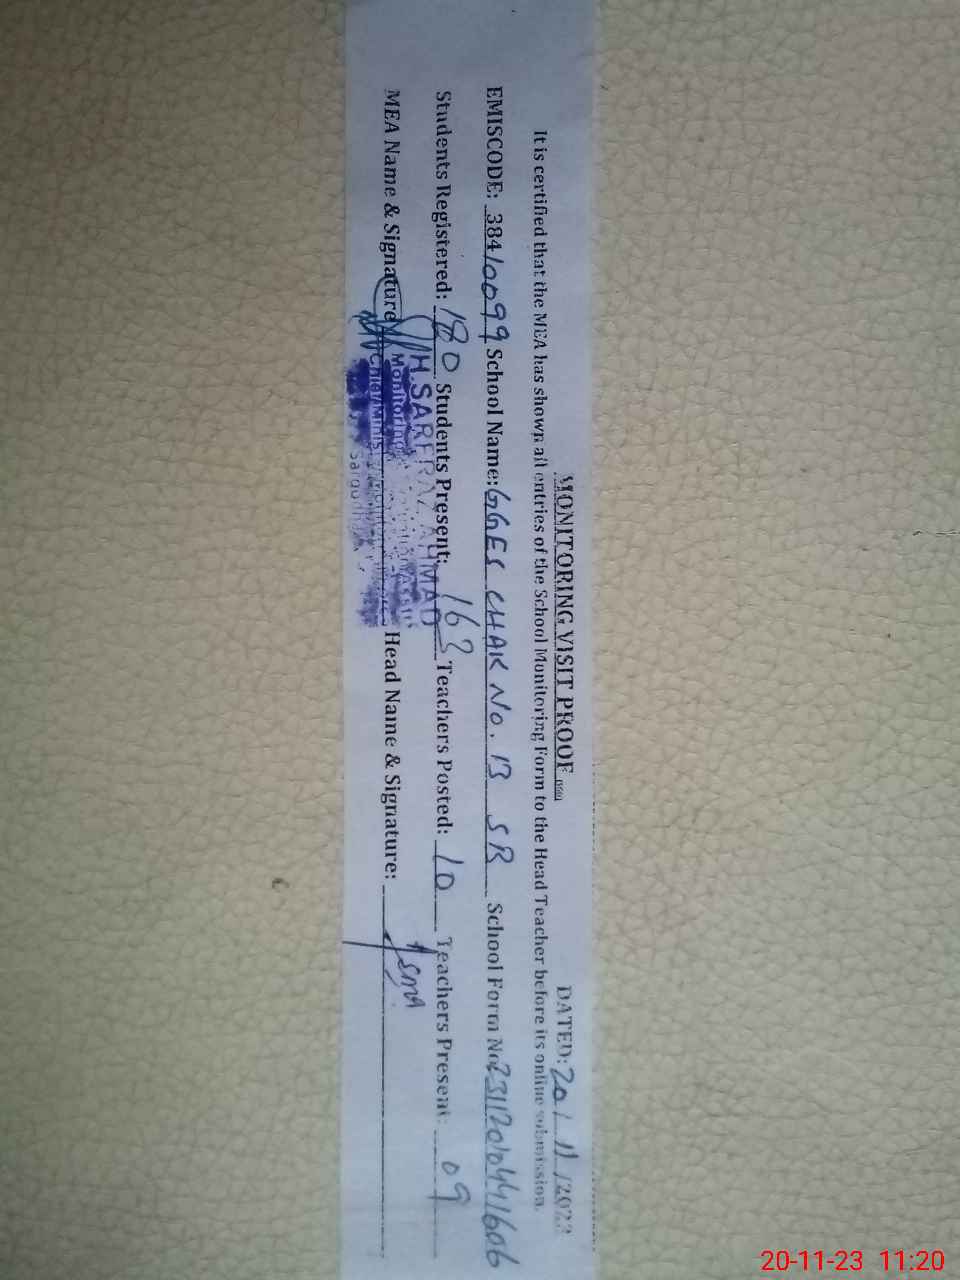 MONITORING VISIT PROOF DATED: 20/11/2023
It is certified that the MEA has shown all entries of the School Monitoring Form to the Head Teacher before its online submission.
EMISCODE: 38410099 School Name: GGES CHAK No. 13 SR School Form No. 2311201041606
Students Registered: 180 Students Present: 163 Teachers Posted: 10 Teachers Present: 09
MEA Name & Signature Head Name & Signature: Asma
H.SARFRAZ AHMAD
Monitoring
Sargodha
20-11-23 11:20